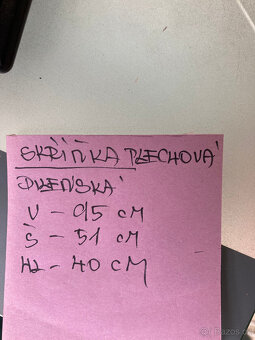 SKŘÍŇKA PLECHOVÁ
DÍLENSKÁ
V - 95 CM
Š - 51 CM
HL - 40 CM